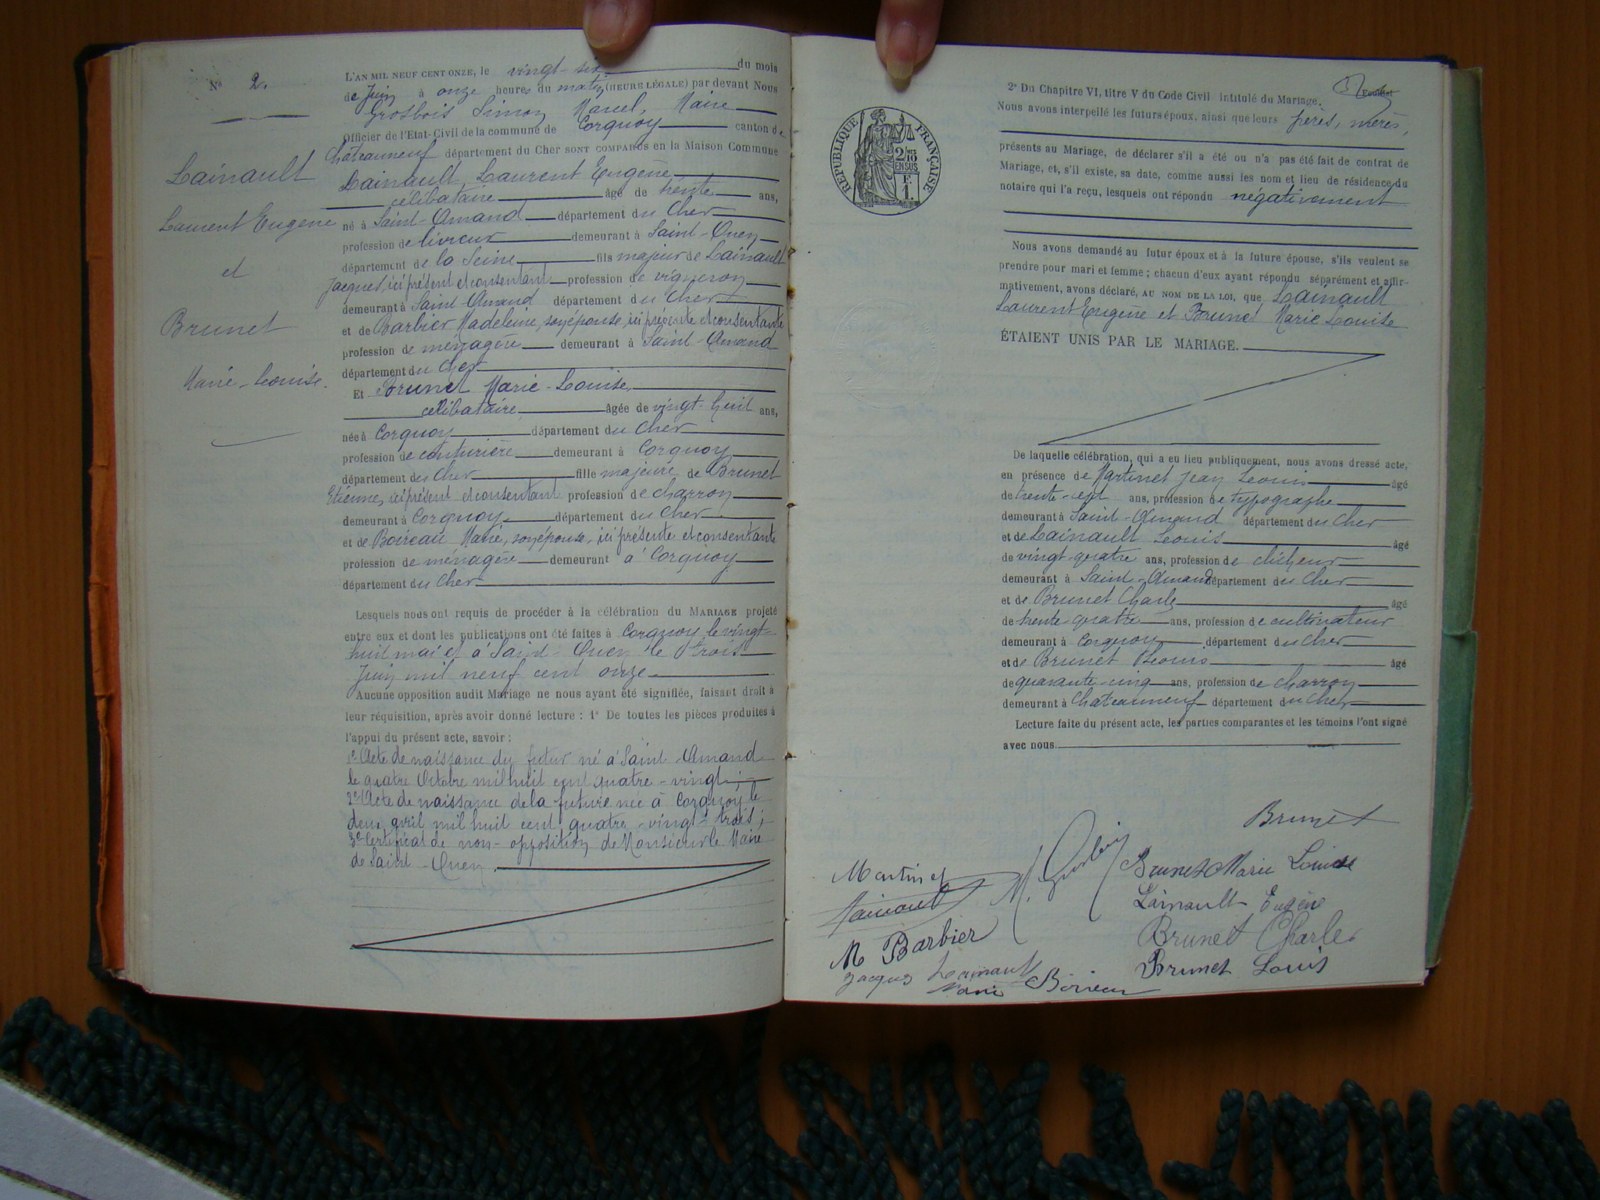 N° 2.
Lainault
Laurent Eugène
et
Brunet
Marie-Louise.
L'AN MIL NEUF CENT ONZE, le vingt-six du mois
de Juin à onze heures du matin (HEURE LÉGALE) par devant Nous
Grosbois Simon Marcel, Maire
Officier de l'Etat-Civil de la commune de Corquoy canton de
Châteauneuf département du Cher SONT COMPARUS en la Maison Commune
Lainault, Laurent Eugène
célibataire âgé de trente ans,
né à Saint-Amand département du Cher
profession de livreur demeurant à Saint-Ouen
département de la Seine fils majeur de Lainault
Jacques, ici présent et consentant profession de vigneron
demeurant à Saint-Amand département du Cher
et de Barbier Madeleine, son épouse, ici présente et consentante
profession de ménagère demeurant à Saint-Amand
département du Cher
Et Brunet Marie-Louise
célibataire âgée de vingt-huit ans,
née à Corquoy département du Cher
profession de couturière demeurant à Corquoy
département du Cher fille majeure de Brunet
Etienne, ici présent et consentant profession de charron
demeurant à Corquoy département du Cher
et de Boireau Marie, son épouse, ici présente et consentante
profession de ménagère demeurant à Corquoy
département du Cher
Lesquels nous ont requis de procéder à la célébration du MARIAGE projeté
entre eux et dont les publications ont été faites à Corquoy le vingt-
huit mai et à Saint-Ouen le trois
Juin mil neuf cent onze
Aucune opposition audit Mariage ne nous ayant été signifiée, faisant droit à
leur réquisition, après avoir donné lecture : 1° De toutes les pièces produites à
l'appui du présent acte, savoir :
1° Acte de naissance du futur né à Saint-Amand
le quatre Octobre mil huit cent quatre-vingt ;
2° Acte de naissance de la future née à Corquoy le
deux avril mil huit cent quatre-vingt-trois ;
3° Certificat de non-opposition de Monsieur le Maire
de Saint-Ouen
RÉPUBLIQUE FRANÇAISE
2/10
EN SUS
F.
1.
2° Du Chapitre VI, titre V du Code Civil intitulé du Mariage.
Nous avons interpellé les futurs époux, ainsi que leurs pères, mères,
présents au Mariage, de déclarer s'il a été ou n'a pas été fait de contrat de
Mariage, et, s'il existe, sa date, comme aussi les nom et lieu de résidence du
notaire qui l'a reçu, lesquels ont répondu négativement
Nous avons demandé au futur époux et à la future épouse, s'ils veulent se
prendre pour mari et femme ; chacun d'eux ayant répondu séparément et affir-
mativement, avons déclaré, AU NOM DE LA LOI, que Lainault
Laurent Eugène et Brunet Marie Louise
ÉTAIENT UNIS PAR LE MARIAGE.
De laquelle célébration, qui a eu lieu publiquement, nous avons dressé acte,
en présence de Martinet Jean Louis âgé
de trente-sept ans, profession de typographe
demeurant à Saint-Amand département du Cher
et de Lainault Louis âgé
de vingt-quatre ans, profession de clicheur
demeurant à Saint-Amand département du Cher
et de Brunet Charles âgé
de trente quatre ans, profession de cultivateur
demeurant à Corquoy département du Cher
et de Brunet Louis âgé
de quarante-cinq ans, profession de charron
demeurant à Chateauneuf département du Cher
Lecture faite du présent acte, les parties comparantes et les témoins l'ont signé
avec nous
Brunet
Martinet
Brunet Marie Louise
Lainault
Lainault Eugène
M Barbier
Brunet Charles
Jacques Lainault
Brunet Louis
Marie Boireau